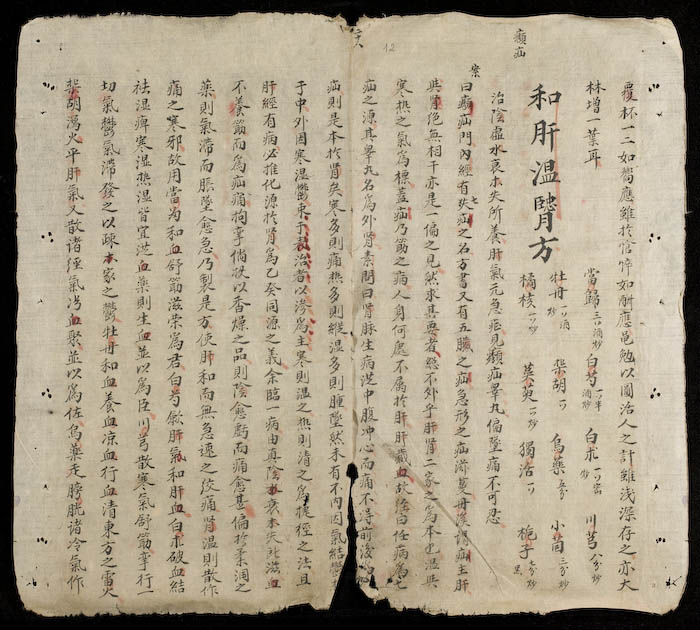 覆杯一二如響應雖於恰悖如䏻應黽勉以圖活人之計雖浅深存之亦大
林增一葉耳
癩疝
和肝温腎方
當歸三口酒炒 白芍一口半酒炒 白朮一口蜜炒 川芎八分炒
牡丹一口酒炒 柴胡一口 烏藥五分 小茴三分炒
橘核一口炒 茱萸一口炒 獨活一口 梔子七分炒黑
治陰虚水衰木失所養肝氣亢急疝見癩疝睾丸偏墜痛不可忍
案
曰癩疝門内經有七疝之名方書又有五臟之疝急形之疝濟芰毋後謂疝主肝
與腎絶無相干亦是一偏之見然求其要者㧾不外乎肝腎二家之為本也温與
寒熱之氣為標盖疝乃筋之病人身何處不屬於肝肝藏血故経曰任病為七
疝之源其睾丸名爲外腎素問曰腎脉生病従中腹冲心而痛不得前後為
疝則是本於腎矣寒多則痛熱多則縱湿多則腫墜然未有不内因氣結
于中外因寒湿鬱束于裏治者以滲為主寒則温之熱則清之為捷徑之法且
肝經有病必推化源於腎爲乙癸同源之義余臨一病由真陰衰木失所滋血
不養筋而為疝痛拘攣倘挾以香燥之品則陰愈虧而痛愈甚偏於柔润之
藥則氣滯而脹墜愈急乃製是方使肝和而無急速之绞痛腎温則散作
痛之寒邪故用當歸和血舒筋滋栄為君白芍歛肝氣和肝血白朮破血結
祛湿痺寒湿熱湿皆宜芝血藥則生血並以為臣川芎散寒氣舒筋攣行一
切氣鬱氣滯發之以疎本家之鬱牡丹和血養血凉血行血清東方之雷火
柴胡瀉火平肝氣又散諸經氣滞血聚並以為佐烏藥走膀胱諸冷氣作
12